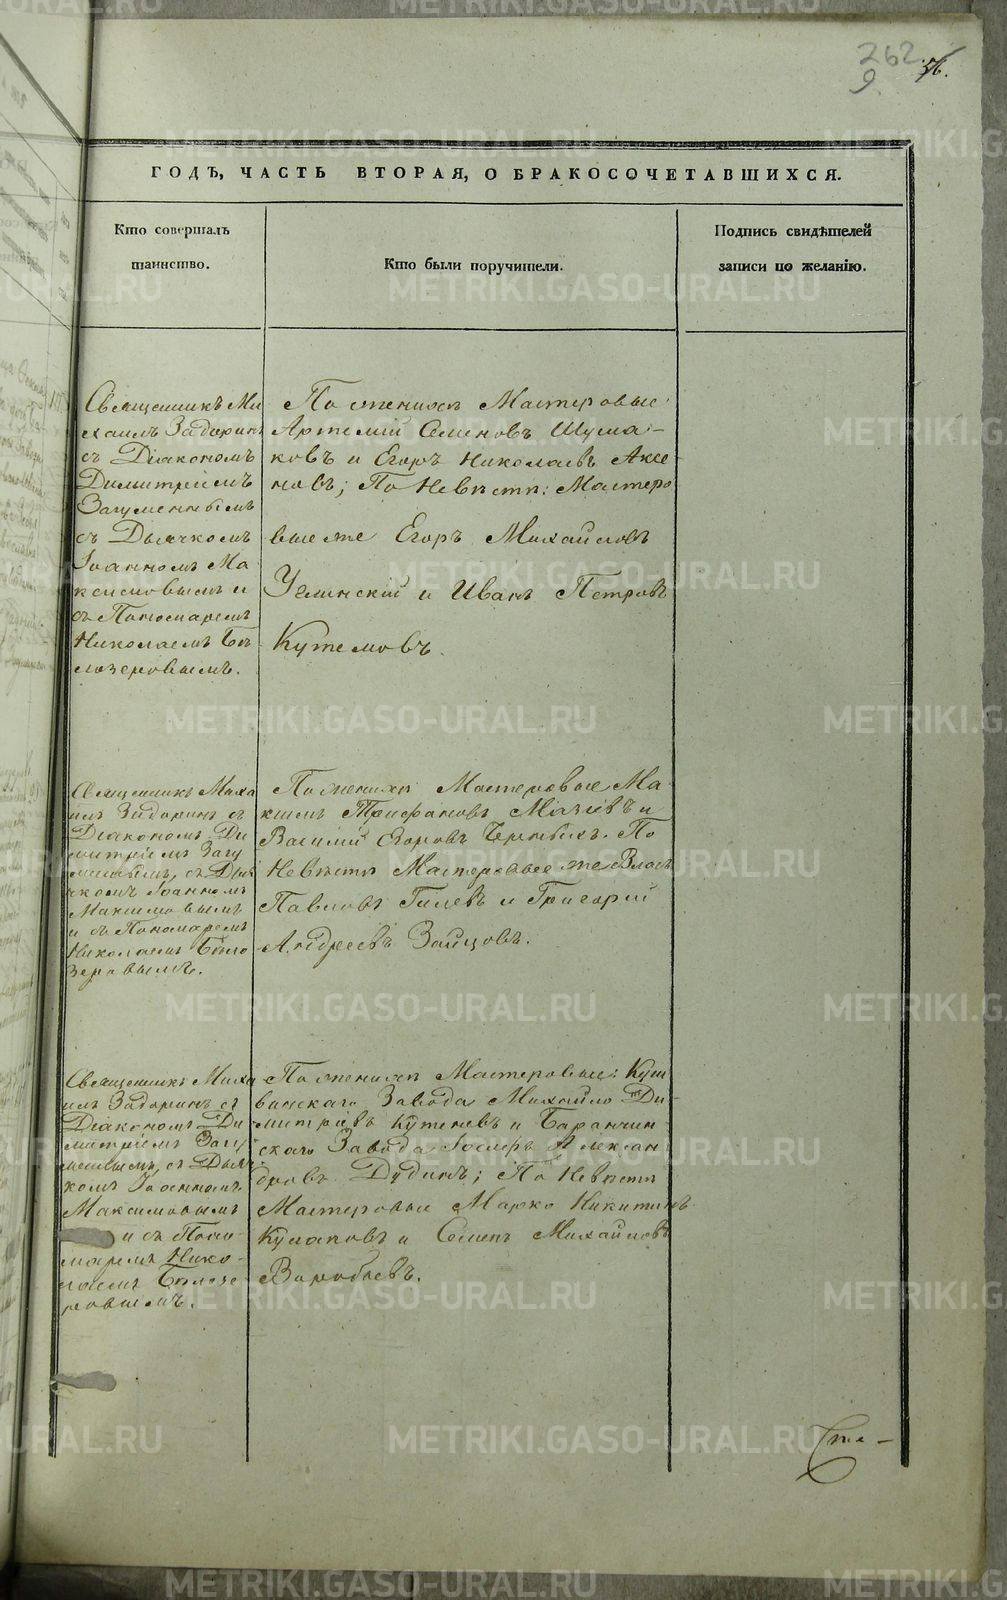 262
9.
36.
ГОДЪ, ЧАСТЬ ВТОРАЯ, О БРАКОСОЧЕТАВШИХСЯ.
Кто совершалъ
таинство.
Кто были поручители.
Подпись свидѣтелей
записи по желанію.
Священникъ Ми
хаилъ Задоринъ
съ Діакономъ
Димитріемъ
Загуменнымъ
съ Дьячкомъ
Іоанномъ Ма
ксимовымъ и
съ Пономаремъ
Николаемъ Бѣ
лозеровымъ.
По женихѣ Мастеровые
Артемій Семеновъ Шума-
ковъ и Егоръ Николаевъ Аксе
новъ; По Невѣстѣ: Мастеро
выеже Егоръ Михайловъ
Углинскій и Иванъ Петровъ
Кутемовъ.
Священникъ Миха
илъ Задоринъ съ
Діакономъ Ди
митріемъ Загу
меннымъ, съ Дья
чкомъ Іоанномъ
Максимовымъ
и съ Пономаремъ
Николаемъ Бѣло
зеровымъ.
По женихѣ Мастеровые Ма
ксимъ Трифановъ и
Василій Егоровъ Черныхъ. По
Невѣстѣ Мастеровые же Власъ
Павловъ Гилевъ и Григорій
Андреевъ Зайцовъ.
Священникъ Миха
илъ Задоринъ съ
Діакономъ Ди
митріемъ Загу
меннымъ, съ Дьяч
комъ Іоанномъ
Максимовымъ
и съ Поно
маремъ Нико-
лаемъ Бѣлозе
ровымъ.
По женихѣ Мастеровые: Куш
винскаго Завода Михайло Ди-
митріевъ Кутеневъ и Баранчин
скаго Завода Іосифъ Алексан
дровъ Дудинъ; По Невѣстѣ
Мастеровые Марко Никитинъ
Кулаковъ и Семенъ Михайловъ
Воробьевъ.
METRIKI.GASO-URAL.RU